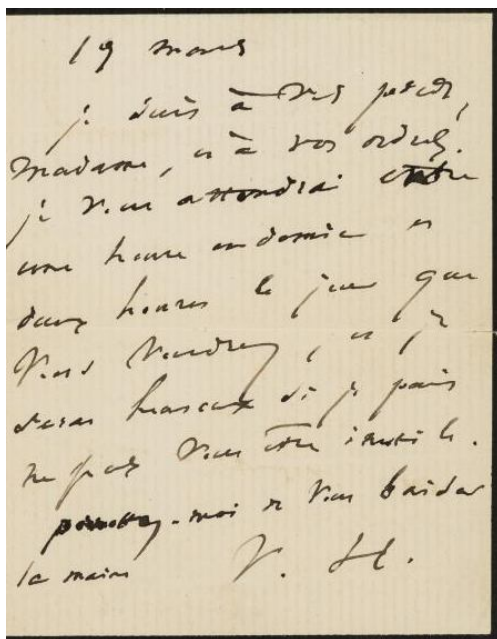 19 mars
je suis à vos pieds,
Madame, et à vos ordres.
je vous attendrai entre
une heure et demie et
deux heures le jour que
vous voudrez, et je
serai heureux si je puis
ne pas vous être inutile.
permettez-moi de vous baiser
la main V. H.